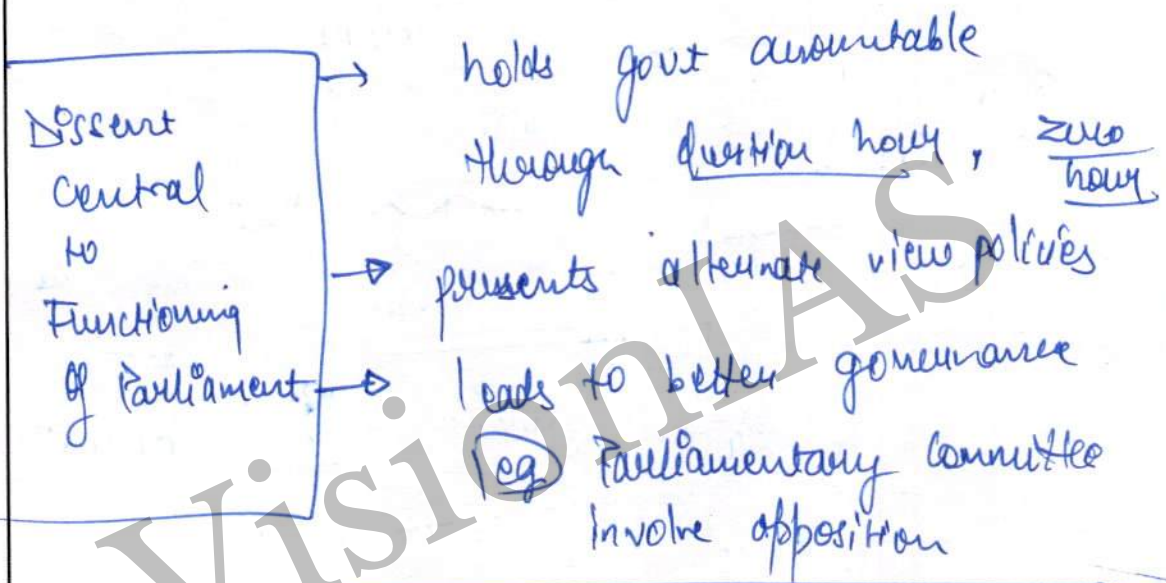 Dissent
Central
to
Functioning
of Parliament
holds govt accountable
through Question hour, zero hour
presents alternate view policies
leads to better governance
eg Parliamentary Committee
involve opposition
VisionIAS